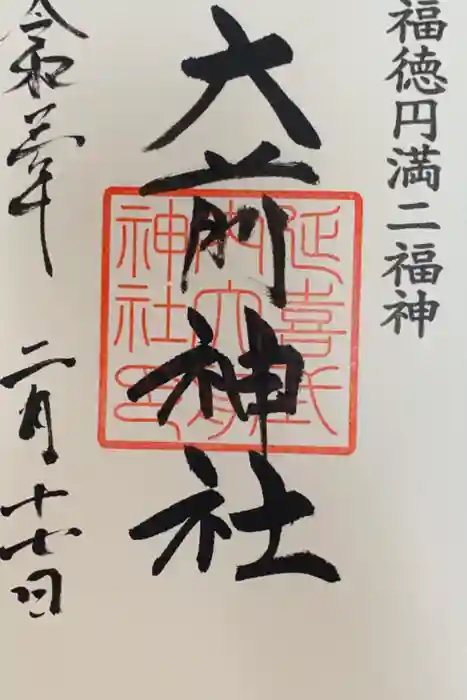 福徳円満二福神
大前神社
延喜式
内大前
神社印
令和 年 二月十七日